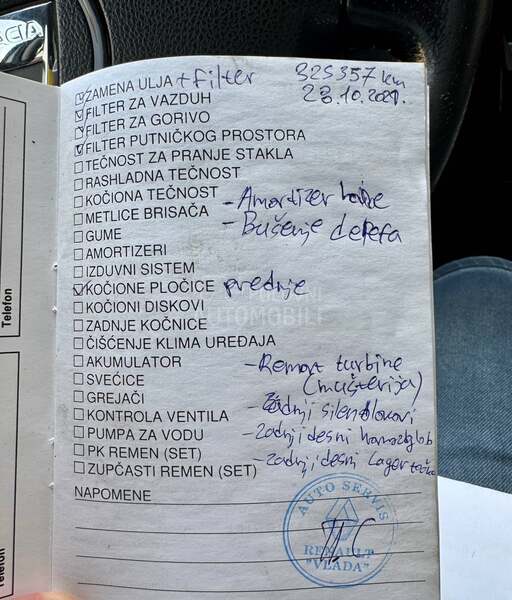 ZAMENA ULJA + filter
325357 km
23.10.2021.
FILTER ZA VAZDUH
FILTER ZA GORIVO
FILTER PUTNIČKOG PROSTORA
TEČNOST ZA PRANJE STAKLA
RASHLADNA TEČNOST
KOČIONA TEČNOST
- Amortizer haube
METLICE BRISAČA
- Bušenje depefa
GUME
AMORTIZERI
IZDUVNI SISTEM
KOČIONE PLOČICE prednje
KOČIONI DISKOVI
ZADNJE KOČNICE
ČIŠĆENJE KLIMA UREĐAJA
AKUMULATOR
- Remont turbine
SVEĆICE
(mušterija)
GREJAČI
- Zadnji silenblokovi
KONTROLA VENTILA
- Zadnji desni
PUMPA ZA VODU
PK REMEN (SET)
- zadnji desni lager
ZUPČASTI REMEN (SET)
NAPOMENE
AUTO SERVIS
RENAULT
"VLADA"
Telefon
AUTOMOBILI